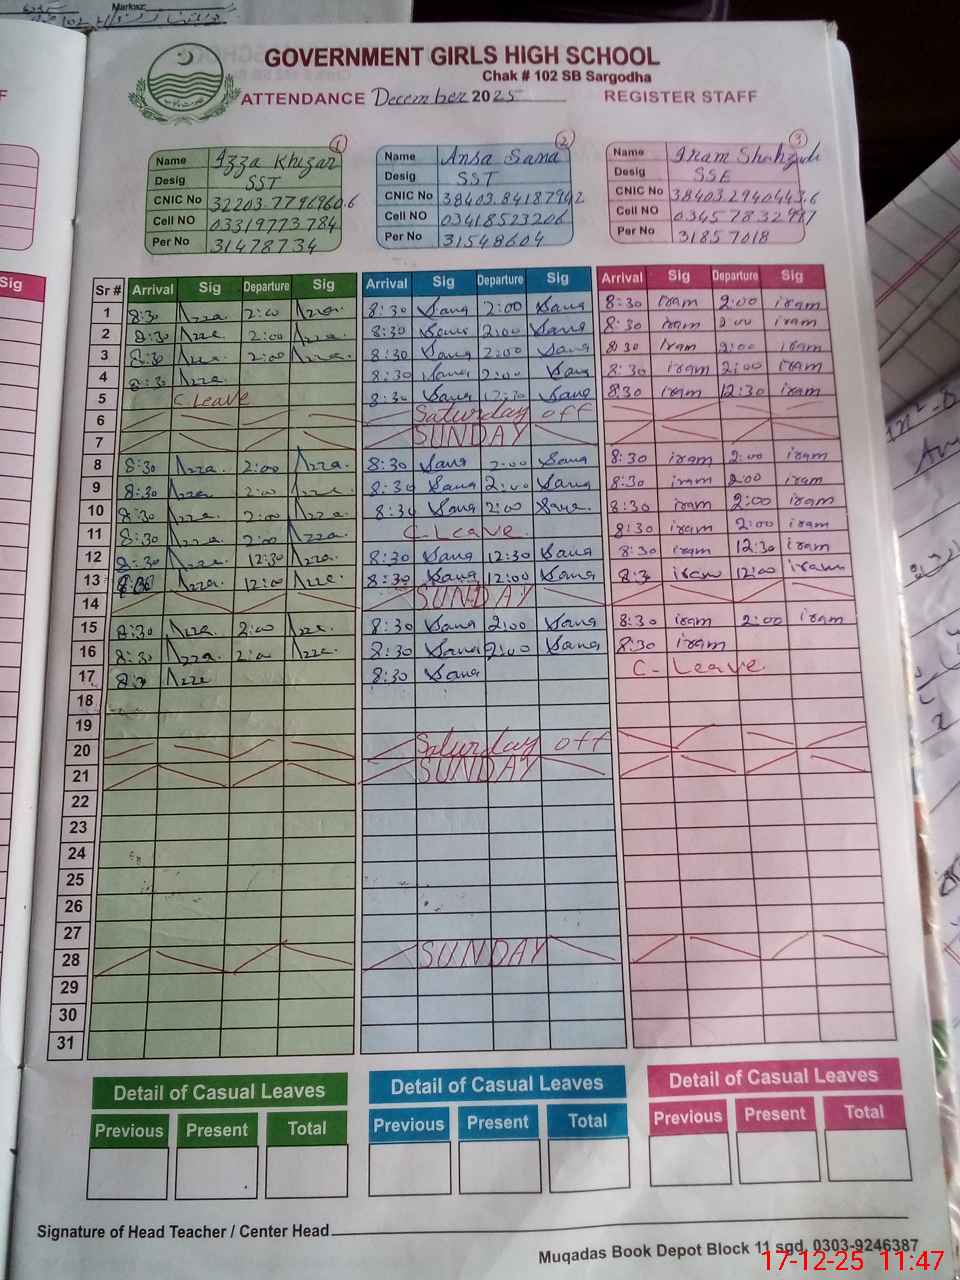 Markaz:
GOVERNMENT GIRLS HIGH SCHOOL
Chak # 102 SB Sargodha
ATTENDANCE December 2025 REGISTER STAFF
1 2 3
Name Izza Khizar Name Ansa Sana Name Iram Shahzadi
Desig SST Desig SST Desig SSE
CNIC No CNIC No 38403.8418794 2 CNIC No 38403.2940443.6
Cell NO 03319773784 Cell NO 03418523206 Cell NO
Per No 31478734 Per No 31548604 Per No 31857018
Sig Sr # Arrival Sig Departure Sig Arrival Sig Departure Sig Arrival Sig Departure Sig
1 8:30 Izza 2:00 Izza 8:30 Sana 2:00 Sana 8:30 iram 2:00 iram
2 8:30 Izza 2:00 Izza 8:30 Sana 2:00 Sana 8:30 iram 2:00 iram
3 8:30 Izza 2:00 Izza 8:30 Sana 2:00 Sana 8:30 iram 2:00 iram
4 8:30 Izza 8:30 Sana 2:00 Sana 8:30 iram 2:00 iram
5 C.Leave 8:30 Sana 12:30 Sana 8:30 iram 12:30 iram
6 Saturday off
7 SUNDAY
8 8:30 Izza 2:00 Izza 8:30 Sana 2:00 Sana 8:30 iram 2:00 iram
9 8:30 Izza 2:00 Izza 8:30 Sana 2:00 Sana 8:30 iram 2:00 iram
10 8:30 Izza 2:00 Izza 8:30 Sana 2:00 Sana 8:30 iram 2:00 iram
11 8:30 Izza 2:00 Izza C-Leave 8:30 iram 2:00 iram
12 8:30 Izza 12:30 Izza 8:30 Sana 12:30 Sana 8:30 iram 12:30 iram
13 8:30 Izza 12:00 Izza 8:30 Sana 12:00 Sana 8:30 iram 12:00 iram
14 SUNDAY
15 8:30 Izza 2:00 Izza 8:30 Sana 2:00 Sana 8:30 iram 2:00 iram
16 8:30 Izza 2:00 Izza 8:30 Sana 2:00 Sana 8:30 iram
17 8:30 Izza 8:30 Sana C-Leave
18
19
20 Saturday off
21 SUNDAY
22
23
24
25
26
27
28 SUNDAY
29
30
31
Detail of Casual Leaves Detail of Casual Leaves Detail of Casual Leaves
Previous Present Total Previous Present Total Previous Present Total
Signature of Head Teacher / Center Head
Muqadas Book Depot Block 11 sgd, 0303-9246387
17-12-25 11:47